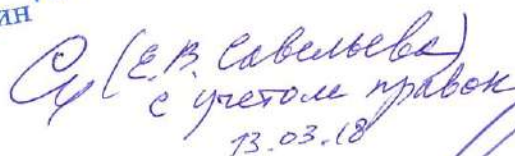 ин
(Е.В. Савельева)
с учетом правок
13.03.18